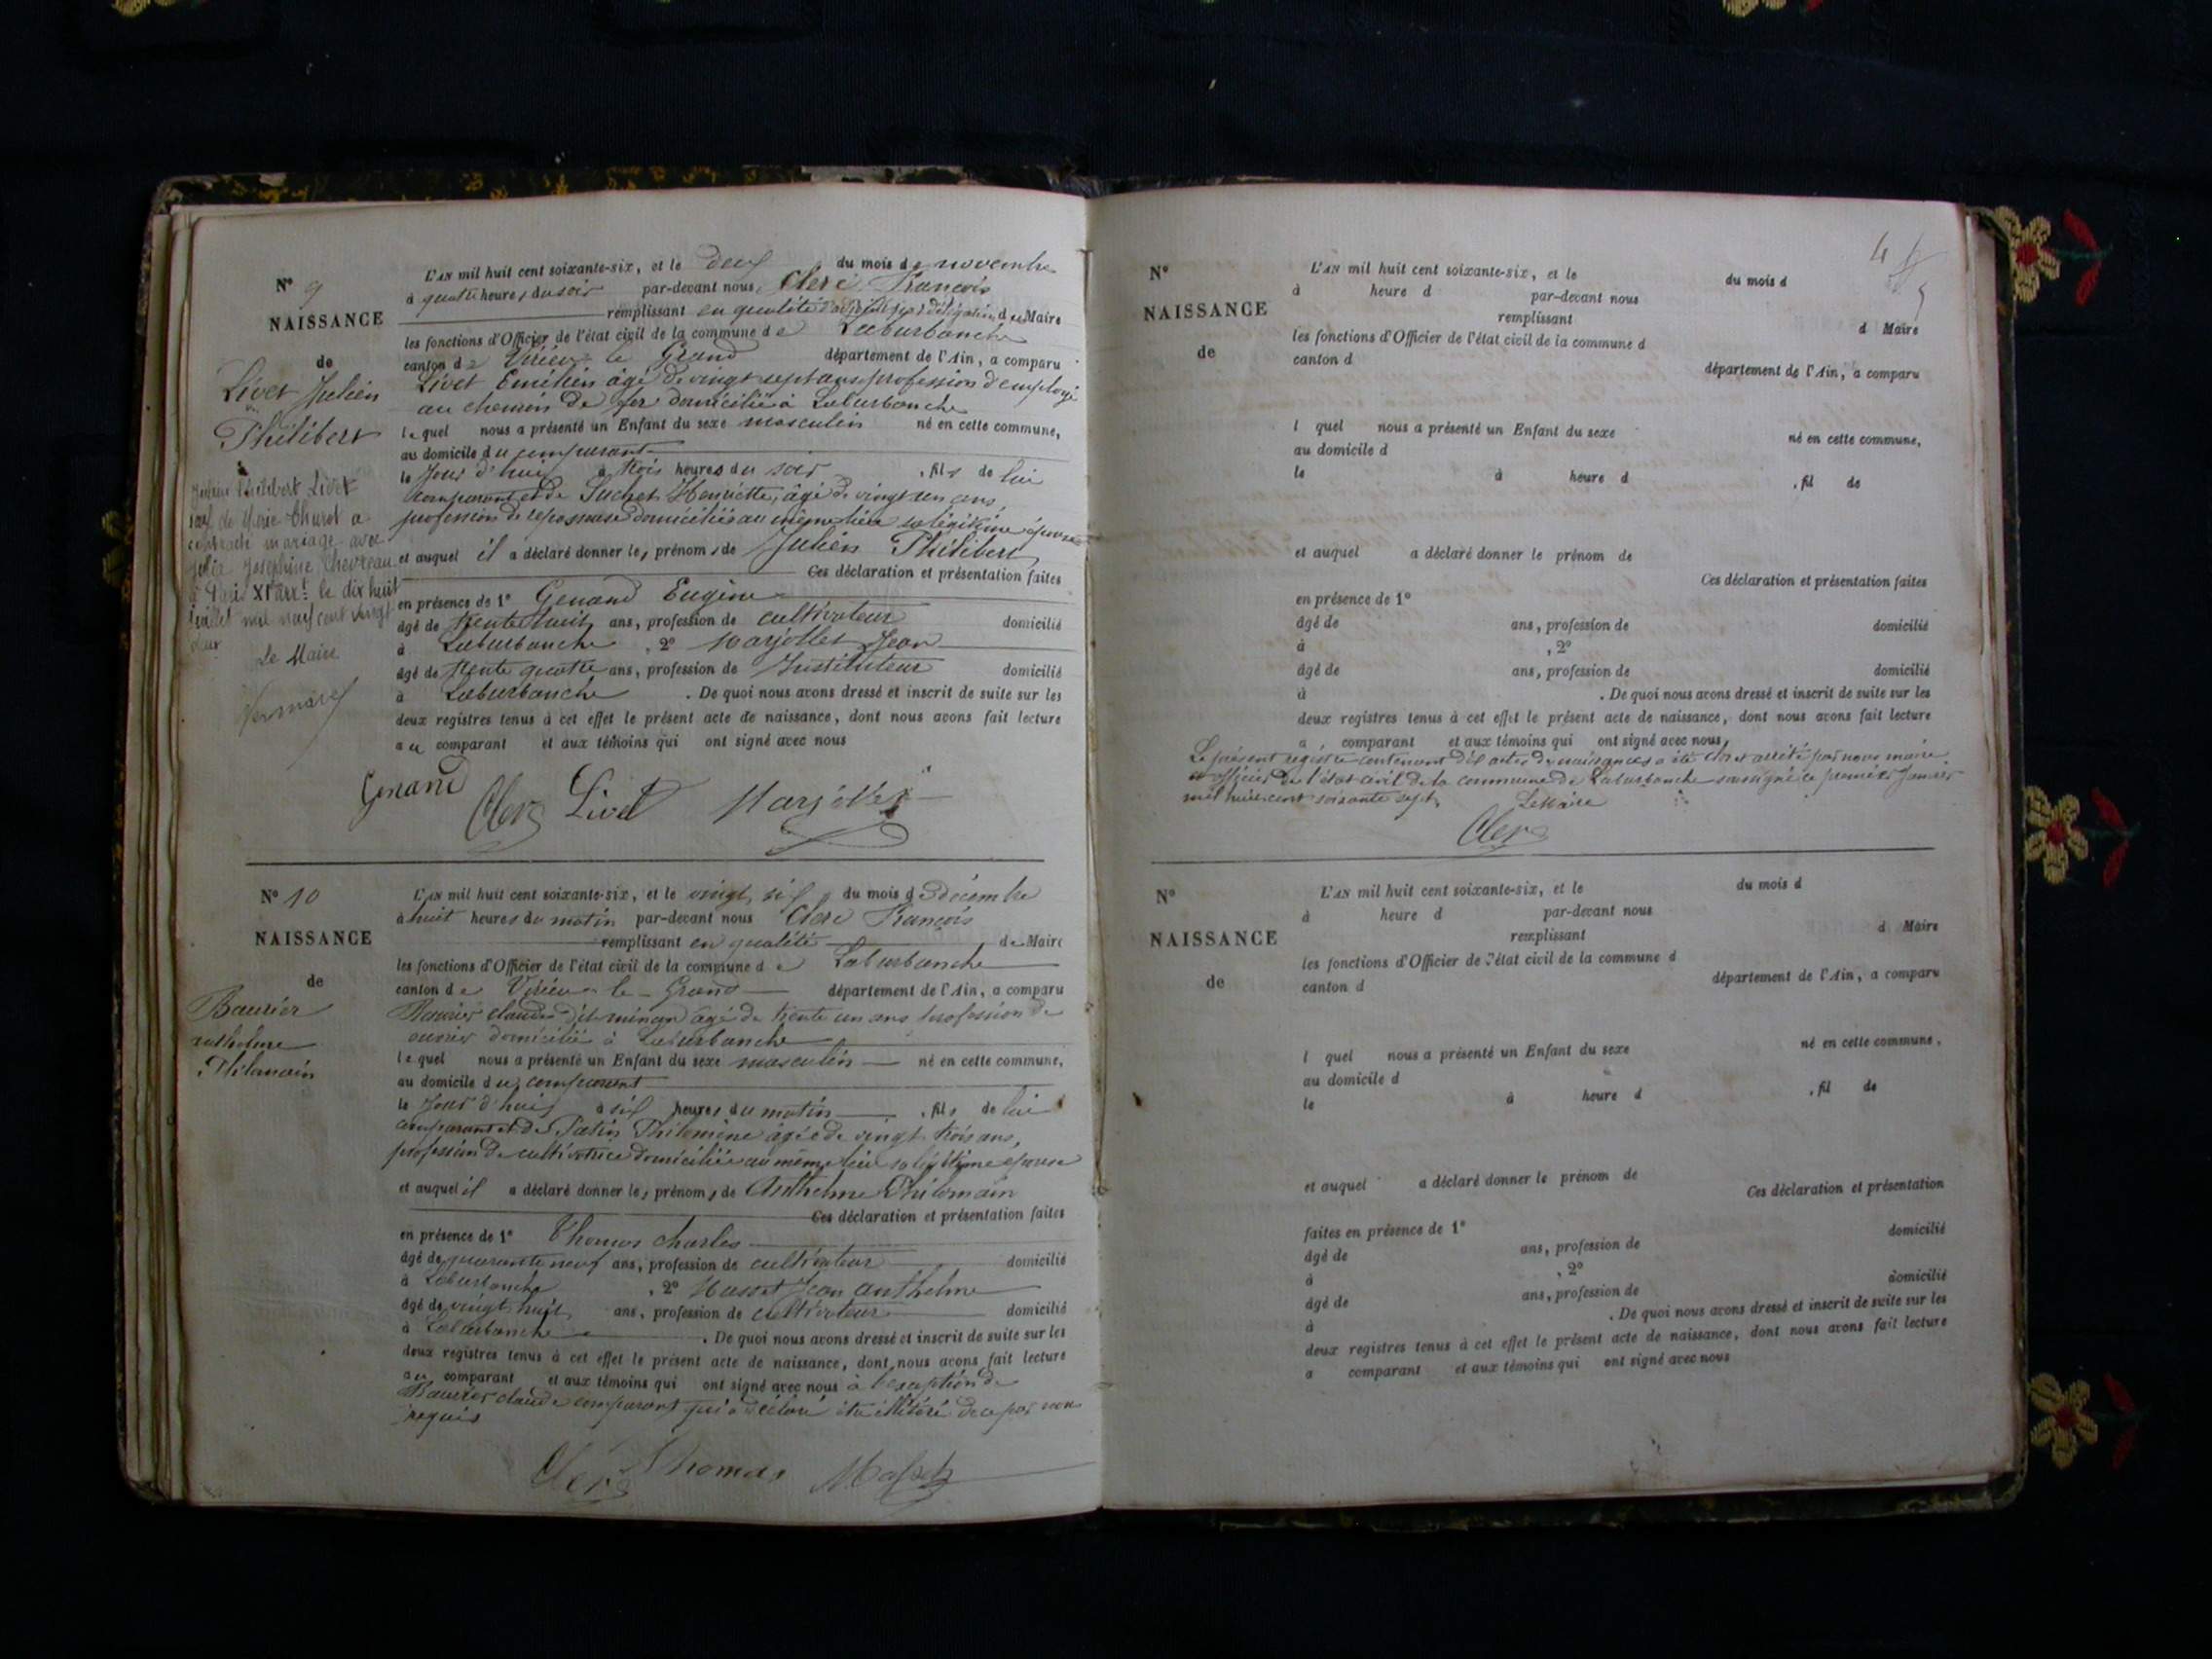 N° 9
NAISSANCE
de
Livet Julien
Philibert
Julien Philibert Livet
veuf de Marie Thurot a
contracté mariage avec
Julia Joséphine Chevreau
à Paris XIe arrt le dix huit
juillet mil neuf cent vingt
Le Maire
L'AN mil huit cent soixante-six, et le deux du mois de novembre
à quatre heures du soir par-devant nous, Clerc François
remplissant en qualité d'adjoint par délégation du Maire
les fonctions d'Officier de l'état civil de la commune de Laburbanche
canton de Virieu-le-Grand département de l'Ain, a comparu
Livet Emilien âgé de vingt sept ans profession d'employé
au chemin de fer domicilié à Laburbanche
lequel nous a présenté un Enfant du sexe masculin né en cette commune,
au domicile du comparant
le jour d'hui à trois heures du soir, fils de lui
comparant et de Suchet Henriette, âgé de vingt un ans,
profession de repasseuse domiciliée au même lieu sa légitime épouse
et auquel il a déclaré donner les prénoms de Julien Philibert
Ces déclaration et présentation faites
en présence de 1° Genand Eugène
âgé de trente huit ans, profession de cultivateur domicilié
à Laburbanche, 2° Marjollet Jean
âgé de trente quatre ans, profession de Instituteur domicilié
à Laburbanche. De quoi nous avons dressé et inscrit de suite sur les
deux registres tenus à cet effet le présent acte de naissance, dont nous avons fait lecture
au comparant et aux témoins qui ont signé avec nous
Genand Clerc Livet Marjollet
N° 10
NAISSANCE
de
Baurier
anthelme
Philomain
L'AN mil huit cent soixante-six, et le vingt six du mois de Décembre
à huit heures du matin par-devant nous Clerc François
remplissant en qualité de Maire
les fonctions d'Officier de l'état civil de la commune de Laburbanche
canton de Virieu-le-Grand département de l'Ain, a comparu
Baurier claude âgé de trente un ans profession de
ouvrier domicilié à Laburbanche
lequel nous a présenté un Enfant du sexe masculin né en cette commune,
au domicile du comparant
le jour d'hui à six heures du matin, fils de lui
comparant et de Patin Philomène âgée de vingt trois ans,
profession de cultivatrice domiciliée au même lieu sa légitime épouse
et auquel il a déclaré donner les prénoms de Anthelme Philomain
Ces déclaration et présentation faites
en présence de 1° Thomas charles
âgé de quarante neuf ans, profession de cultivateur domicilié
à Laburbanche, 2° Masset Jean anthelme
âgé de vingt huit ans, profession de cultivateur domicilié
à Laburbanche. De quoi nous avons dressé et inscrit de suite sur les
deux registres tenus à cet effet le présent acte de naissance, dont nous avons fait lecture
au comparant et aux témoins qui ont signé avec nous à l'exception de
Baurier claude comparant qui a déclaré être illitéré de ce par nous
requis
Clerc Thomas Masset
4
N°
NAISSANCE
de
L'AN mil huit cent soixante-six, et le du mois d
à heure d par-devant nous
remplissant d Maire
les fonctions d'Officier de l'état civil de la commune d
canton d département de l'Ain, a comparu
l quel nous a présenté un Enfant du sexe né en cette commune,
au domicile d
le à heure d , fil de
et auquel a déclaré donner le prénom de
Ces déclaration et présentation faites
en présence de 1°
âgé de ans, profession de domicilié
à , 2°
âgé de ans, profession de domicilié
à . De quoi nous avons dressé et inscrit de suite sur les
deux registres tenus à cet effet le présent acte de naissance, dont nous avons fait lecture
a comparant et aux témoins qui ont signé avec nous
Le présent registre contenant dix actes de naissances a été clos et arrêté par nous maire
et officier de l'état civil de la commune de Laburbanche soussigné ce premier Janvier
mil huit cent soixante sept. Le Maire
Clerc
N°
NAISSANCE
de
L'AN mil huit cent soixante-six, et le du mois d
à heure d par-devant nous
remplissant d Maire
les fonctions d'Officier de l'état civil de la commune d
canton d département de l'Ain, a comparu
l quel nous a présenté un Enfant du sexe né en cette commune,
au domicile d
le à heure d , fil de
et auquel a déclaré donner le prénom de
Ces déclaration et présentation
faites en présence de 1° domicilié
âgé de ans, profession de
à , 2° domicilié
âgé de ans, profession de
à . De quoi nous avons dressé et inscrit de suite sur les
deux registres tenus à cet effet le présent acte de naissance, dont nous avons fait lecture
a comparant et aux témoins qui ont signé avec nous